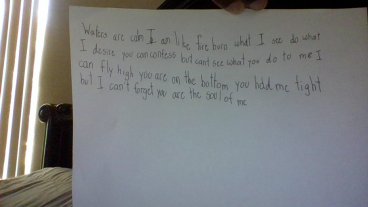 Waters are calm I am like fire burn what I see do what
I desire you can contess but cant see what you do to me I
can fly high you are on the bottom you hold me tight
but I can't forget you are the soul of me